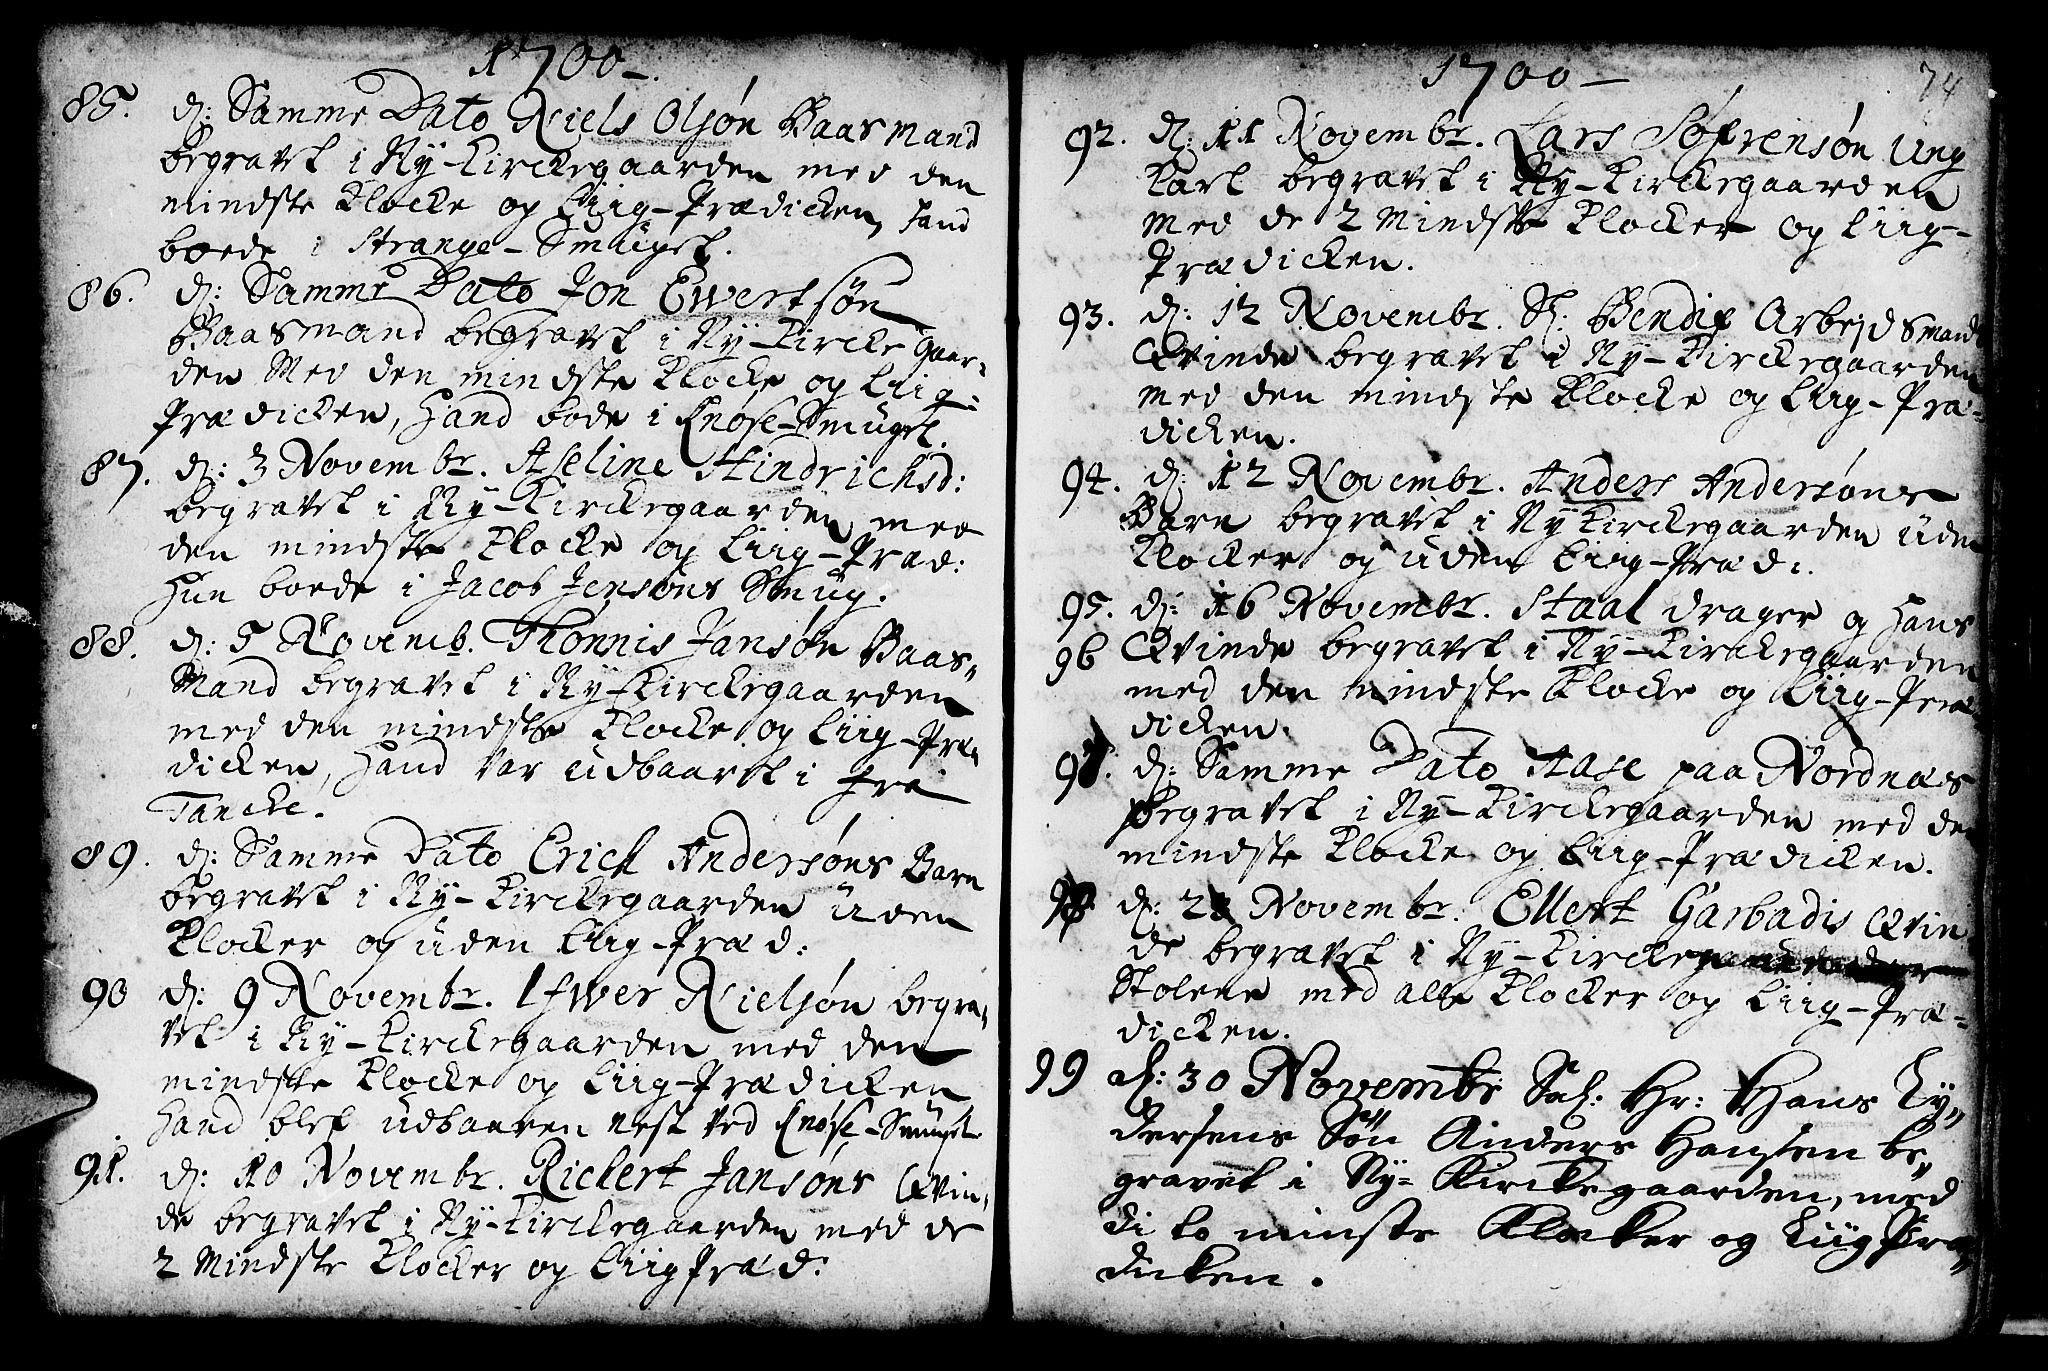 1700.
85. d: Samme Dato Niels Olsøn Baasmand
begravet i Ny-Kirckegaarden med den
mindste Klocke og Liig-Prædicken, hand
boede i Strange-Smuget.
86. d: Samme Dato Jon Ewertsøn
Baasmand begravet i Ny-Kircke gaar-
den Med den mindste Klocke og Liig-
Prædicken, Hand bode i Knøse-Smuget.
87. d: 3 Novembr. Aseline Hindrichsd:
begravet i Ny-Kirckegaarden med
den mindste Klocke og Liig-Præd:
Hun boede i Jacob Jensøns Smug.
88. d: 5 Novemb. Thonnis Jansøn Baas-
Mand begravet i Ny-Kirckegaarden
med den mindste Klocke og Liig-Præ-
dicken, Hand var udbaaret i
Tancke.
89. d: Samme Dato Erich Andersøns Barn
begravet i Ny-Kirckegaarden uden
Klocker og uden Liig-Præd:
90 d: 9 Novembr. Ifwer Nielsøn begra-
vet i Ny-Kirckegaarden med den
mindste Klocke og Liig-Prædicken
Hand blef udbaaren nest ved Knøse-Smuget
91. d: 10 Novembr. Rickert Jansøns Qvin-
de begravet i Ny-Kirckegaarden med de
2 Mindste Klocker og Liig Præd:
1700 74
92. d: 11 Novembr. Lars Søfrensøn Ung
Karl begravet i Ny-Kirckegaarden
Med de 2 Mindste Klocker og Liig-
Prædicken.
93. d: 12 Novembr. Sl: Bendix Arbejdsmands
Qvinde begravet i Ny-Kirckegaarden
med den mindste Klocke og Liig-Præ-
dicken.
94. d: 12 Novembr. Anders Andersøns
Barn begravet i Ny Kirckegaarden uden
Klocker og uden Liig-Præd:
95. d: 16 Novembr. Staal drager og Hans
96 Qvinde begravet i Ny-Kirckegaarden
med den mindste Klocke og Liig-Præ-
dicken.
97. d: Samme Dato Aase paa Nordnæs
begravet i Ny-Kirckegaarden med de
mindste Klocke og Liig-Prædicken.
98 d: Novembr. Ellert Garbadis Qvin-
de begravet i Ny-Kircke
Stolene med alle Klocker og Liig-Præ-
dicken.
99 d: 30 Novembr: Sal: Hr: Hans Ly-
dersens Søn Anders Hansen be-
gravet i Ny-Kirckegaarden, med
di to minste Klocker og Liig Præ-
dicken.